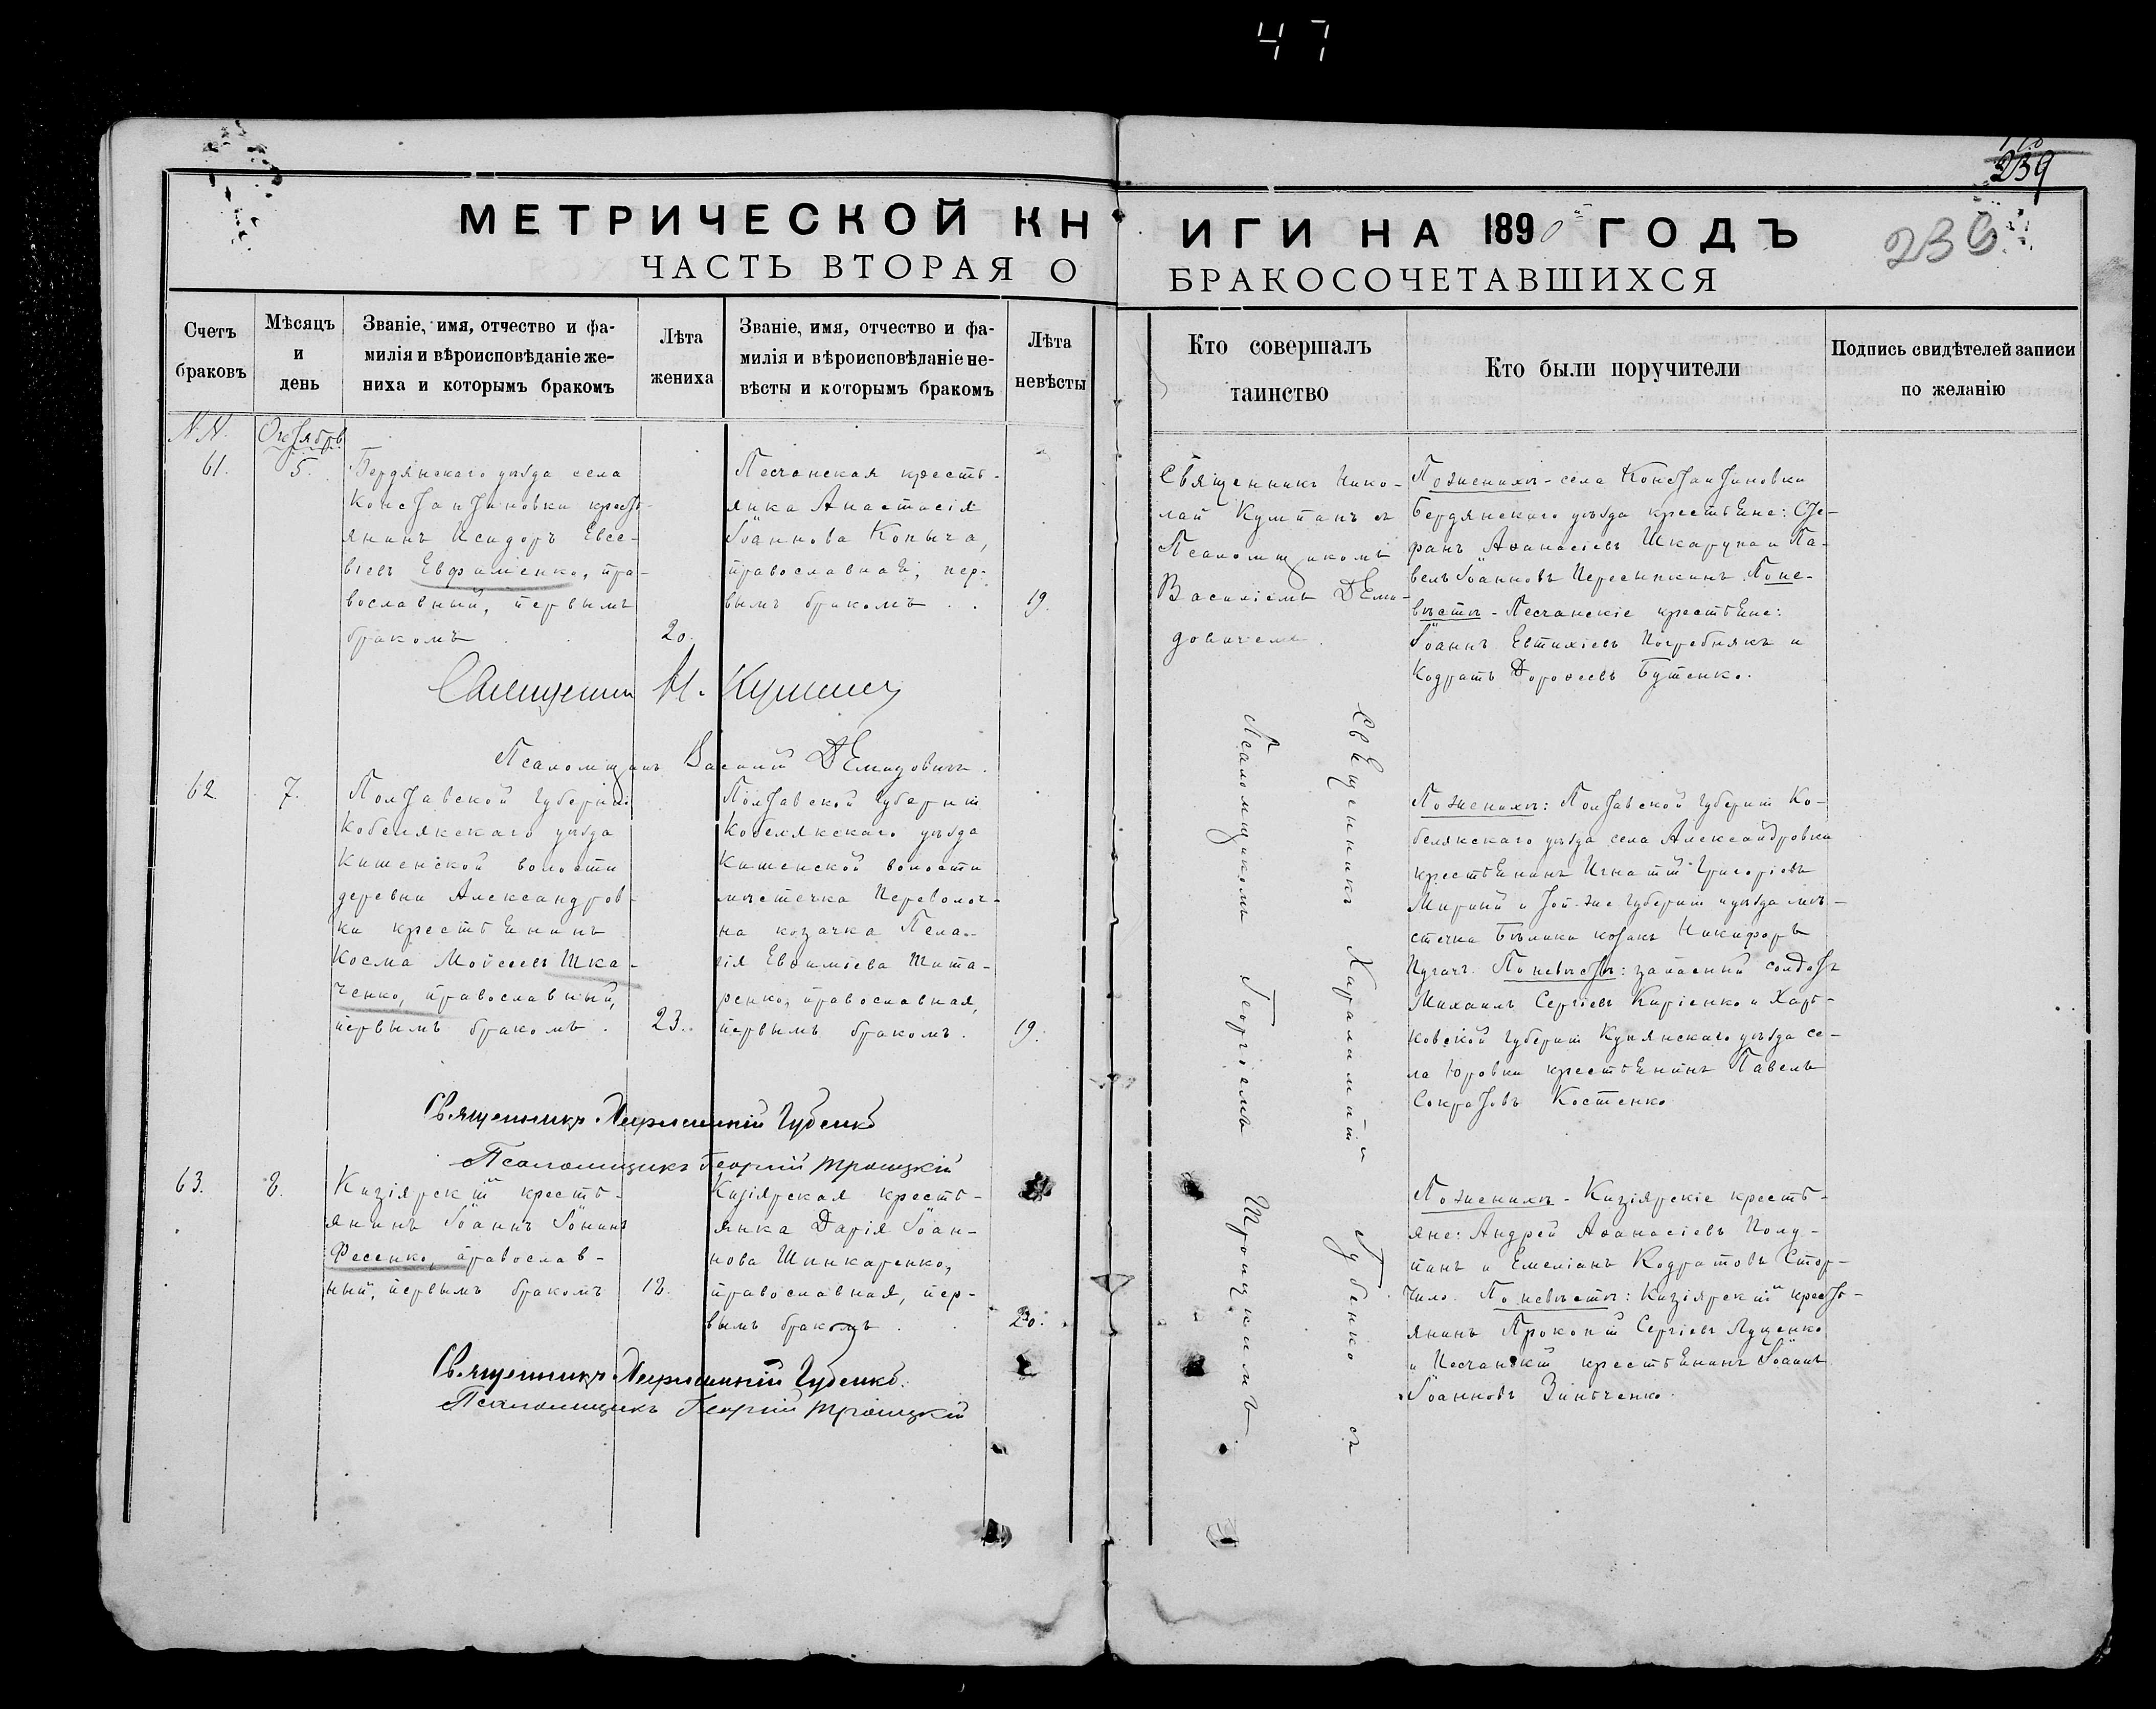 47
239
236
МЕТРИЧЕСКОЙ КНИГИ НА 1890й ГОДЪ
ЧАСТЬ ВТОРАЯ О БРАКОСОЧЕТАВШИХСЯ
Счетъ
браковъ
Мѣсяцъ
и
день
Званіе, имя, отчество и фа-
милія и вѣроисповѣданіе же-
ниха и которымъ бракомъ
Лѣта
жениха
Званіе, имя, отчество и фа-
милія и вѣроисповѣданіе не-
вѣсты и которымъ бракомъ
Лѣта
невѣсты
Кто совершалъ
таинство
Кто были поручители
Подпись свидѣтелей записи
по желанію
N.N.
Октябрь
61.
5.
Бердянскаго уѣзда села
Константиновки кресть-
янинъ Исидоръ Евсе-
віевъ Евфименко, пра-
вославный, первымъ
бракомъ
20.
Песчанская кресть-
янка Анастасія
Іоаннова Копыча,
православная, пер-
вымъ бракомъ
19.
Священникъ Нико-
лай Купманъ съ
Псаломщикомъ
Василіемъ Деми-
довичемъ.
По женихѣ - села Константиновки
Бердянскаго уѣзда крестьяне: Сте-
фанъ Аѳанасіевъ Шкарупа и Па-
велъ Іоанновъ Пересипкинъ. По не-
вѣстѣ - Песчанскіе крестьяне:
Іоаннъ Евтихіевъ Погребнякъ и
Кодратъ Дороѳеевъ Бутенко.
Священникъ Н.
Псаломщикъ Василій Демидовичъ.
62.
7.
Полтавской губерніи
Кобелякскаго уѣзда
Кишенской волости
деревни Александров-
ки крестьянинъ
Косма Мойсеевъ Шка-
ченко, православный,
первымъ бракомъ.
23.
Полтавской губерніи
Кобелякскаго уѣзда
Кишенской волости
мѣстечка Переволоч-
на козачка Пела-
гія Евѳиміева Шита-
ренко, православная,
первымъ бракомъ.
19.
Священникъ Харалампій Губенко съ
Псаломщикомъ Георгіемъ Троицкимъ
По женихѣ: Полтавской губерніи Ко-
белякскаго уѣзда села Александровки
крестьянинъ Игнатій Григоріевъ
Мирний и той-же губерніи и уѣзда мѣ-
стечка Бѣлики козакъ Никифоръ
Пугачъ. По невѣстѣ: запасный солдатъ
Михаилъ Сергіевъ Киріенко и Харь-
ковской губерніи Купянскаго уѣзда се-
ла Юровки крестьянинъ Павелъ
Сократовъ Костенко
Священникъ Харалампій Губенко
Псаломщикъ Георгій Троицкій
63.
8.
Кизіярскій кресть-
янинъ Іоаннъ Іонинъ
Фесенко, православ-
ный, первымъ бракомъ
18.
Кизіярская кресть-
янка Дарія Іоан-
нова Шинкаренко,
православная, пер-
вымъ бракомъ
20.
По женихѣ - Кизіярскіе кресть-
яне: Андрей Аѳанасіевъ Полу-
панъ и Емеліанъ Кодратовъ Стор-
чило. По невѣстѣ: Кизіярскій кресть-
янинъ Прокопій Сергіевъ Луценко
и Песчанскій крестьянинъ Іоаннъ
Іоанновъ Зинченко.
Священникъ Харалампій Губенко.
Псаломщикъ Георгій Троицкій